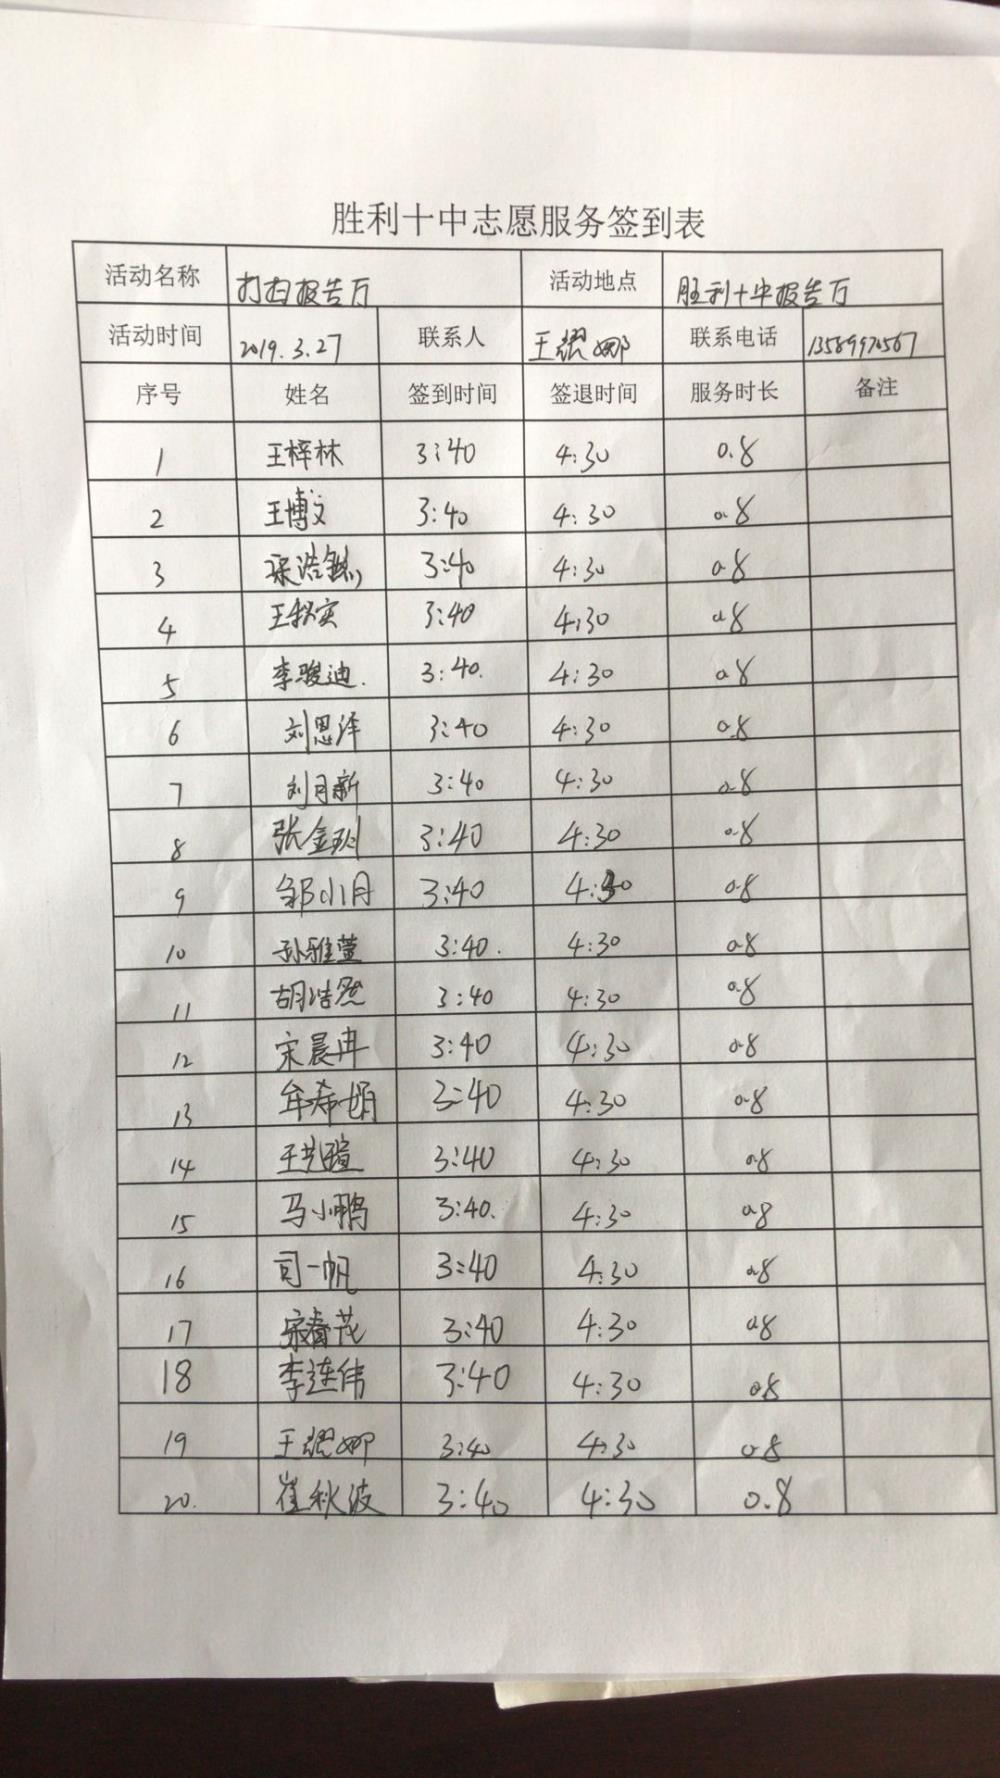 胜利十中志愿服务签到表
活动名称 打扫报告厅 活动地点 胜利十中报告厅
活动时间 2019.3.27 联系人 王娜 联系电话 13589970567
序号 姓名 签到时间 签退时间 服务时长 备注
1 王梓林 3:40 4:30 0.8
2 王博文 3:40 4:30 0.8
3 浩 3:40 4:30 0.8
4 王秋实 3:40 4:30 0.8
5 李骏迪. 3:40. 4:30 0.8
6 刘思泽 3:40 4:30 0.8
7 刘月新 3:40 4:30 0.8
8 张金 3:40 4:30 0.8
9 邹小月 3:40 4:30 0.8
10 孙雅萱 3:40. 4:30 0.8
11 胡浩然 3:40 4:30 0.8
12 宋晨冉 3:40 4:30 0.8
13 牟希娟 3:40 4:30 0.8
14 王瑄 3:40 4:30 0.8
15 马小鹏 3:40. 4:30 0.8
16 司一帆 3:40 4:30 0.8
17 宋春花 3:40 4:30 0.8
18 李连伟 3:40 4:30 0.8
19 王娜 3:40 4:30 0.8
20. 崔秋波 3:40 4:30 0.8